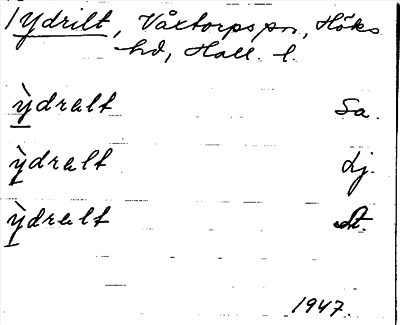 /Ydrilt, Våxtorps sn., Höks
hd, Hall. l.
ỳdralt Sa.
ỳdralt Lj.
ỳdralt
1947.